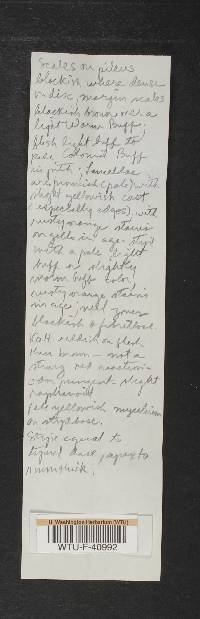 Scales on pileus
blackish where dense
on disc, margin scales
blackish brown over a
light Warm Buff;
flesh light buff to
pale Colonial Buff
in pith; Lamellae
are brownish (pale) with
slight yellowish cast
(especially edges), with
rusty orange stains
on gills in age. Stipe
with a pale light
buff or slightly
warm buff color,
rusty orange stains
in age;
blackish fibrillose.
KOH reddish on flesh,
then brown - not a
strong red reaction.
Odor pungent - slight
raphanoid
Pale yellowish mycelium
on stipe base.
Stipe equal to
U. Washington Herbarium (WTU)
WTU-F-40992